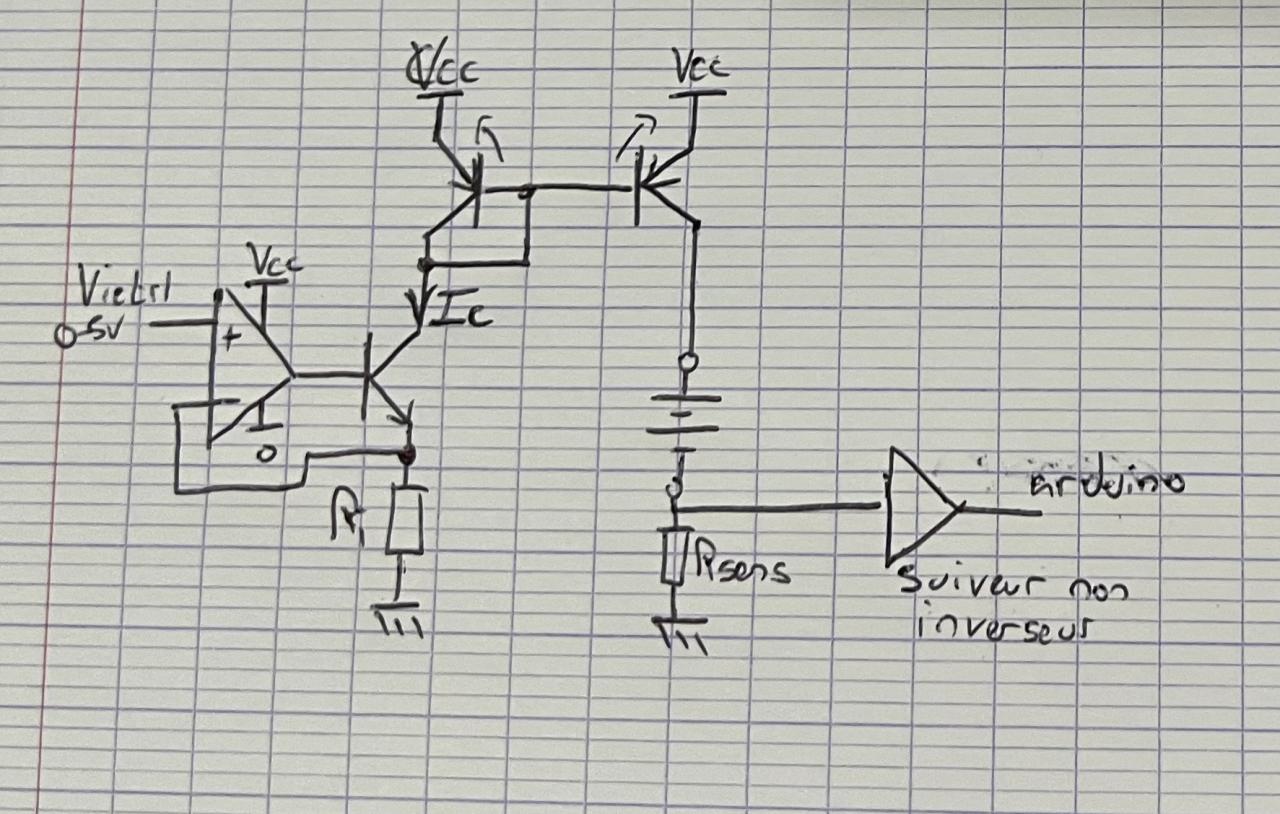 Vcc
Vcc
Vcc
Victrl
0-5V
+
Ic
0
R1
Rsens
arduino
Suiveur non
inverseur